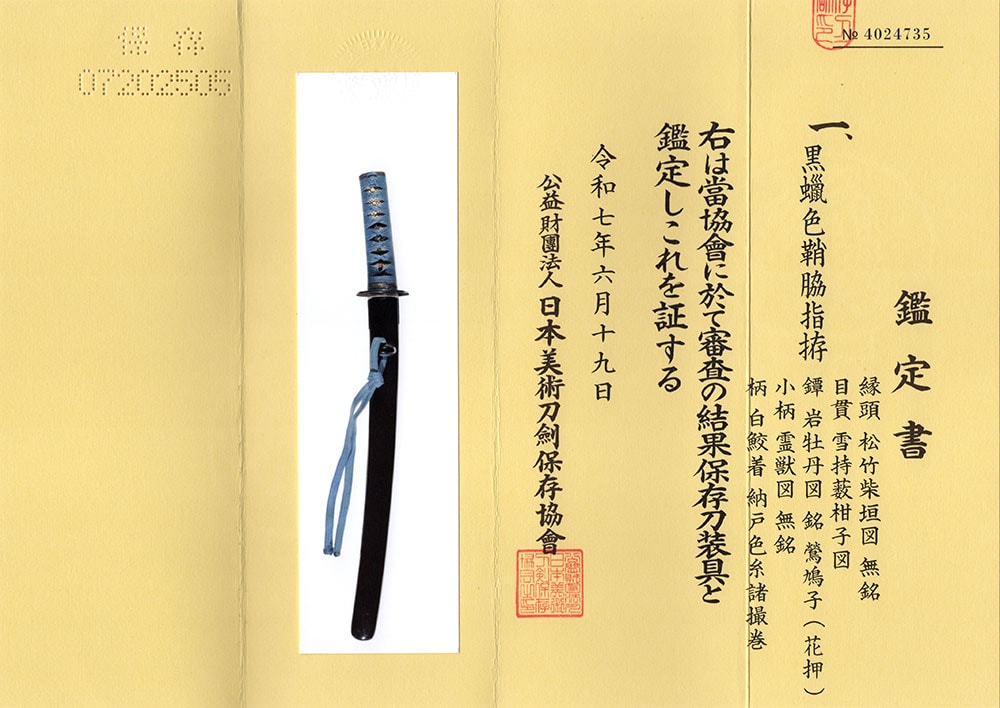 № 4024735
鑑定書
一、黒蠟色鞘脇指拵
縁頭 松竹柴垣図 無銘
目貫 雪持薮柑子図
鐔 岩牡丹図 銘 鶯鳩子(花押)
小柄 霊獣図 無銘
柄 白鮫着 納戸色糸諸撮巻
右は當協會に於て審査の結果保存刀装具と
鑑定しこれを証する
令和七年六月十九日
公益財團法人 日本美術刀劍保存協會
保存
07202505